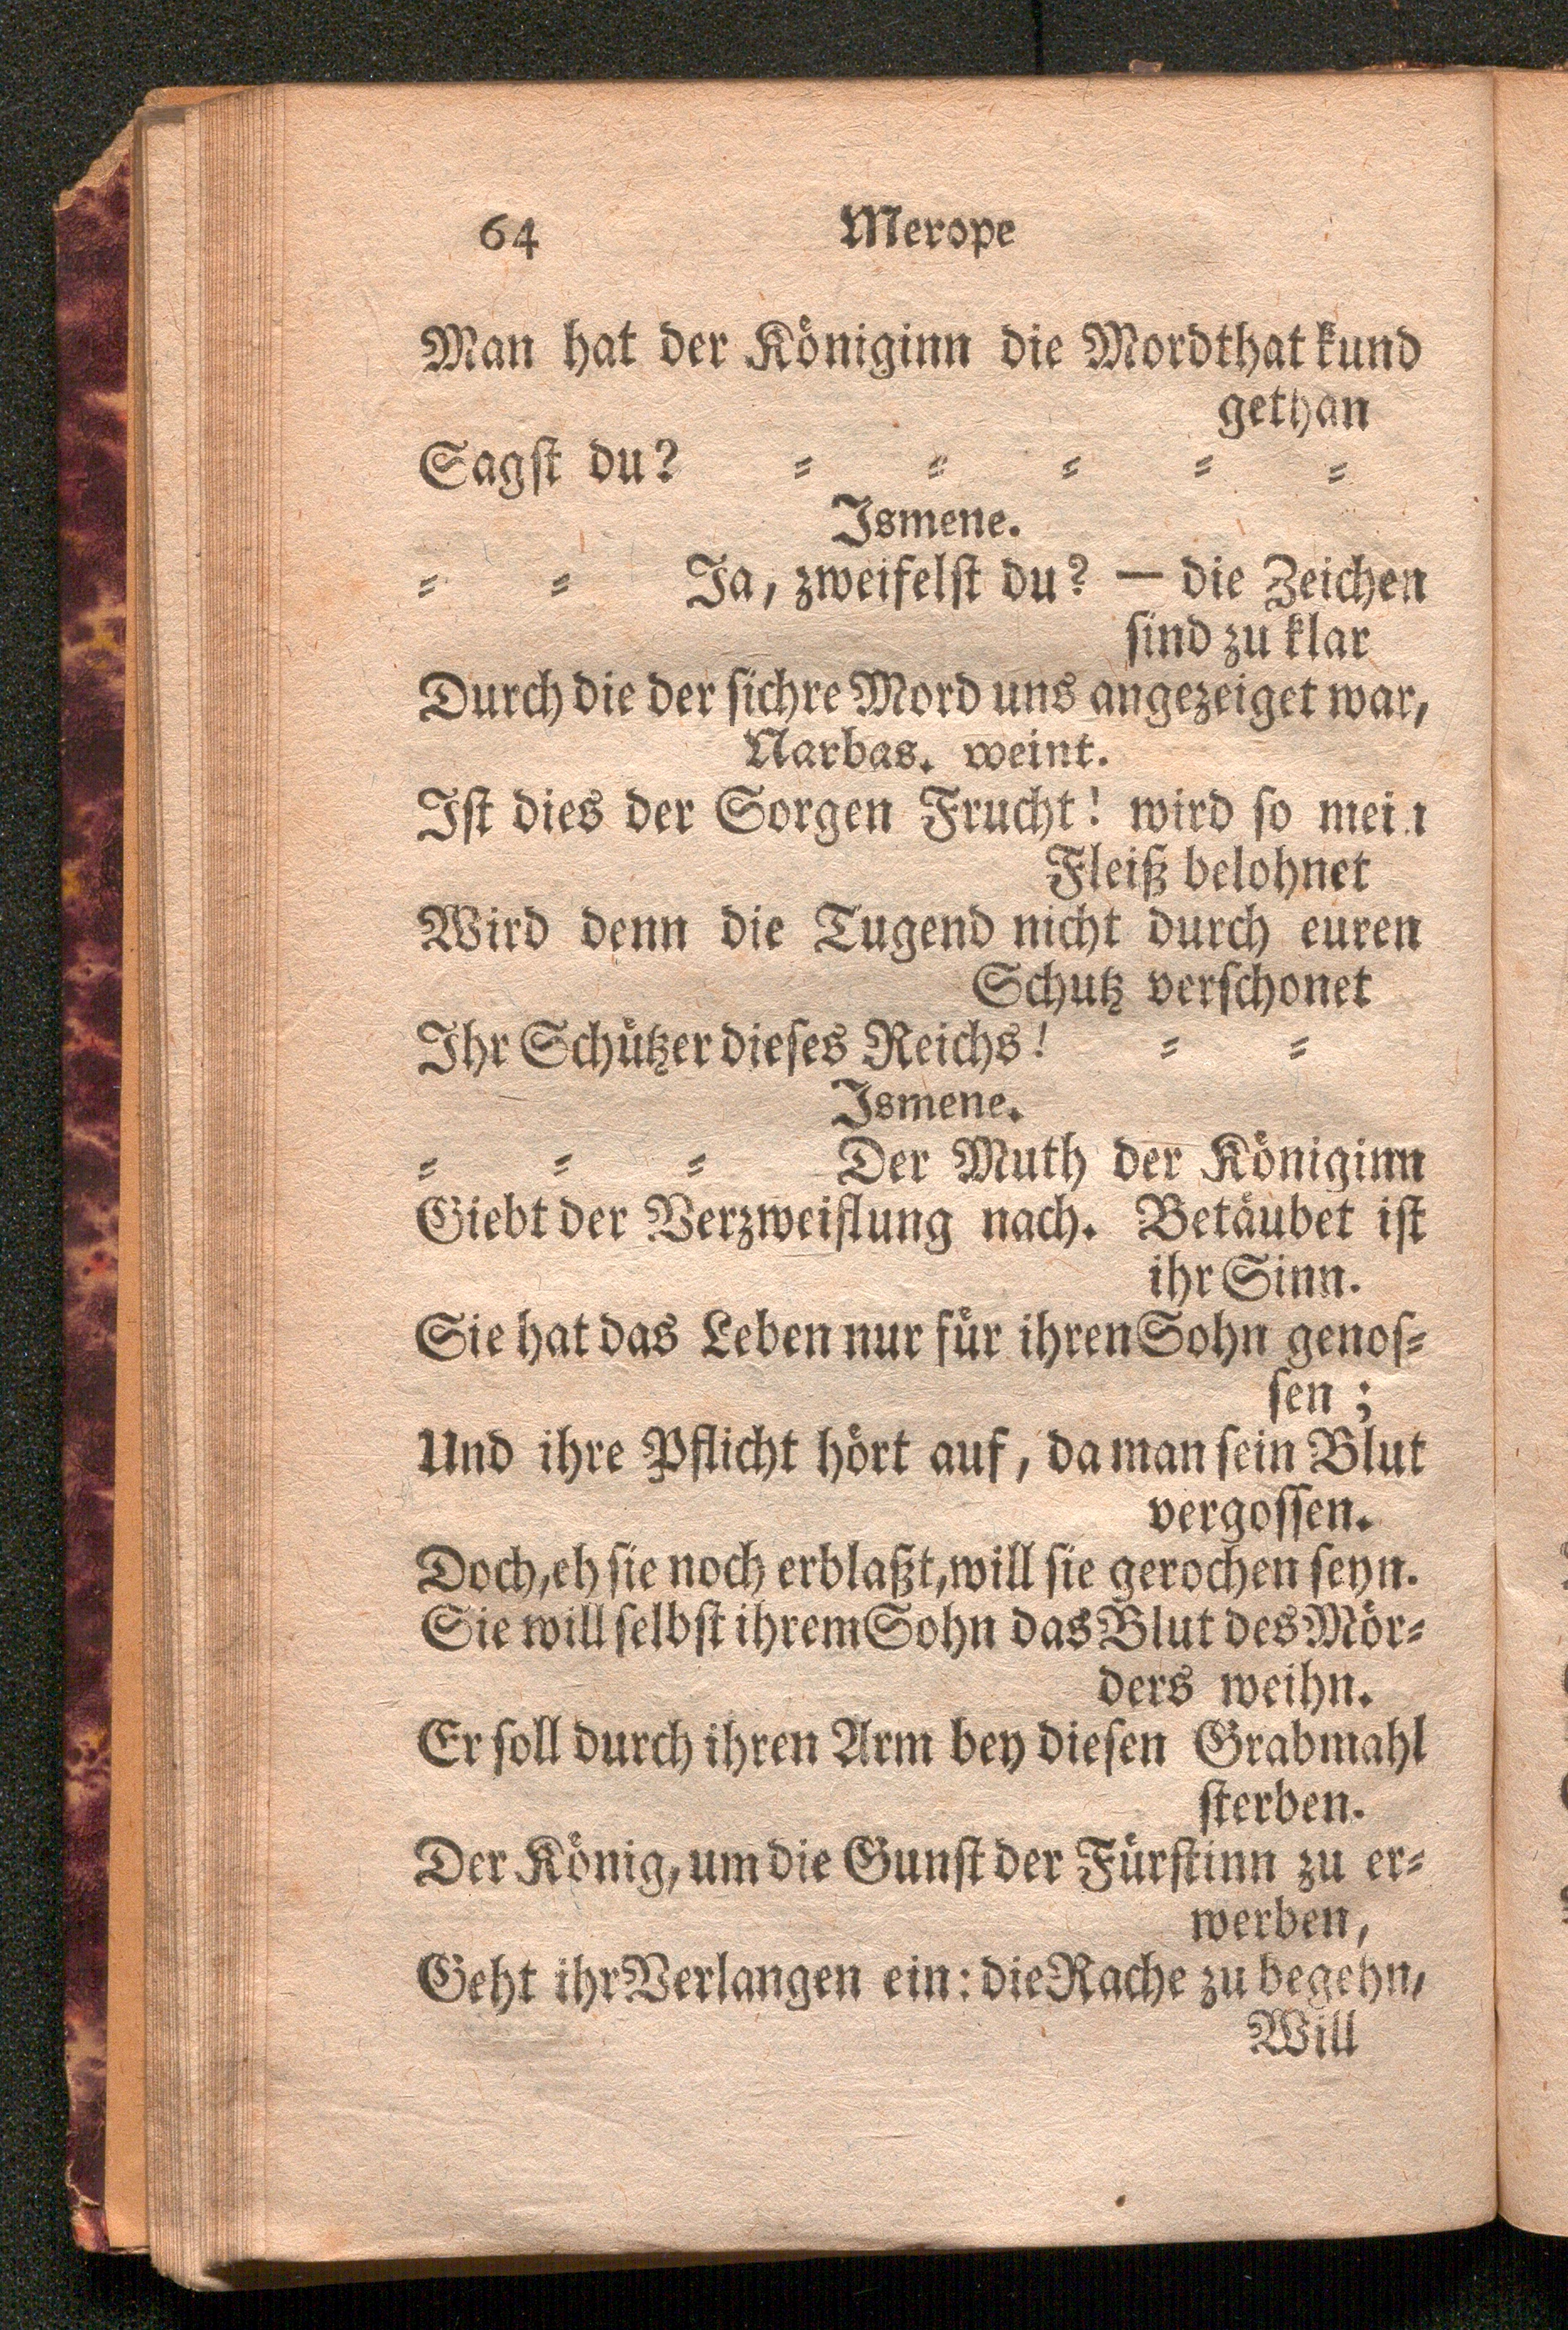 64 Merope
Man hat der Königinn die Mordthat kund
gethan
Sagst du? ⸗ ⸗ ⸗ ⸗ ⸗
Ismene.
⸗ ⸗ Ja, zweifelst du? — die Zeichen
sind zu klar
Durch die der sichre Mord uns angezeiget war,
Narbas. weint.
Ist dies der Sorgen Frucht! wird so mein
Fleiß belohnet
Wird denn die Tugend nicht durch euren
Schutz verschonet
Ihr Schützer dieses Reichs! ⸗ ⸗
Ismene.
⸗ ⸗ ⸗ Der Muth der Königinn
Giebt der Verzweiflung nach. Betäubet ist
ihr Sinn.
Sie hat das Leben nur für ihren Sohn genos⸗
sen;
Und ihre Pflicht hört auf, da man sein Blut
vergossen.
Doch, eh sie noch erblaßt, will sie gerochen seyn.
Sie will selbst ihrem Sohn das Blut des Mör⸗
ders weihn.
Er soll durch ihren Arm bey diesen Grabmahl
sterben.
Der König, um die Gunst der Fürstinn zu er⸗
werben,
Geht ihr Verlangen ein: die Rache zu begehn,
Will